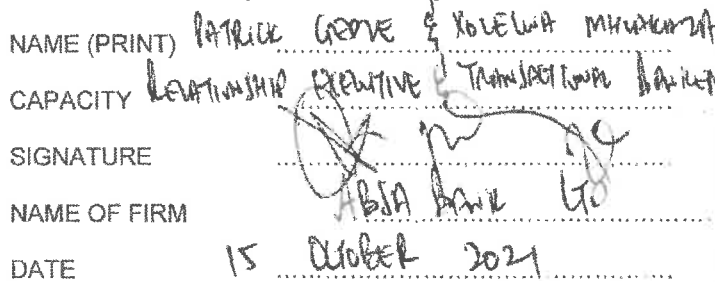 NAME (PRINT) PATRICK & XOLELWA
CAPACITY RELATIONSHIP EXECUTIVE & TRANSACTIONAL BANKER
SIGNATURE
NAME OF FIRM ABSA BANK LTD
DATE 15 OCTOBER 2021